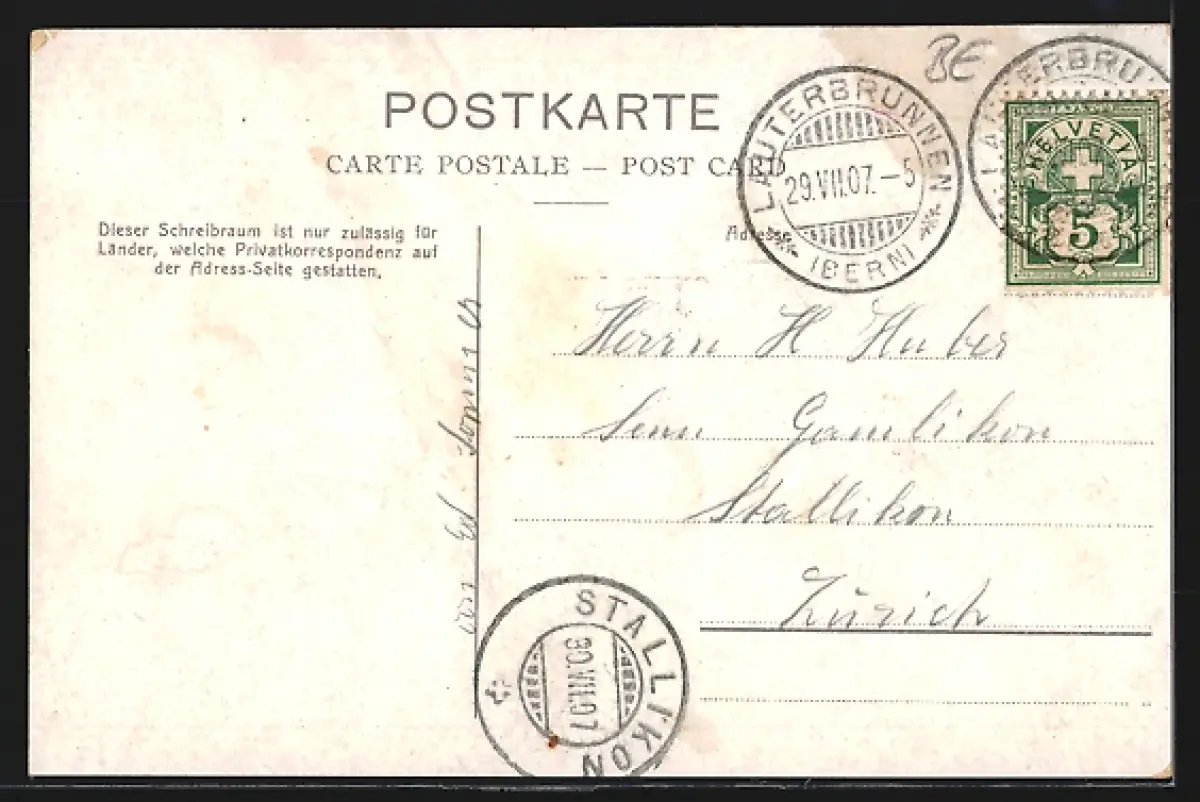 BE
POSTKARTE
CARTE POSTALE — POST CARD
Dieser Schreibraum ist nur zulässig für
Länder, welche Privatkorrespondenz auf
der Adress-Seite gestatten.
LAUTERBRUNNEN
29.VII.07.–5
(BERN)
LAUTERBRU
HELVETIA
5
Herrn H Huber
Senn Gamlikon
Stallikon
Zürich
von Ed
STALLIKON
30.VII.07